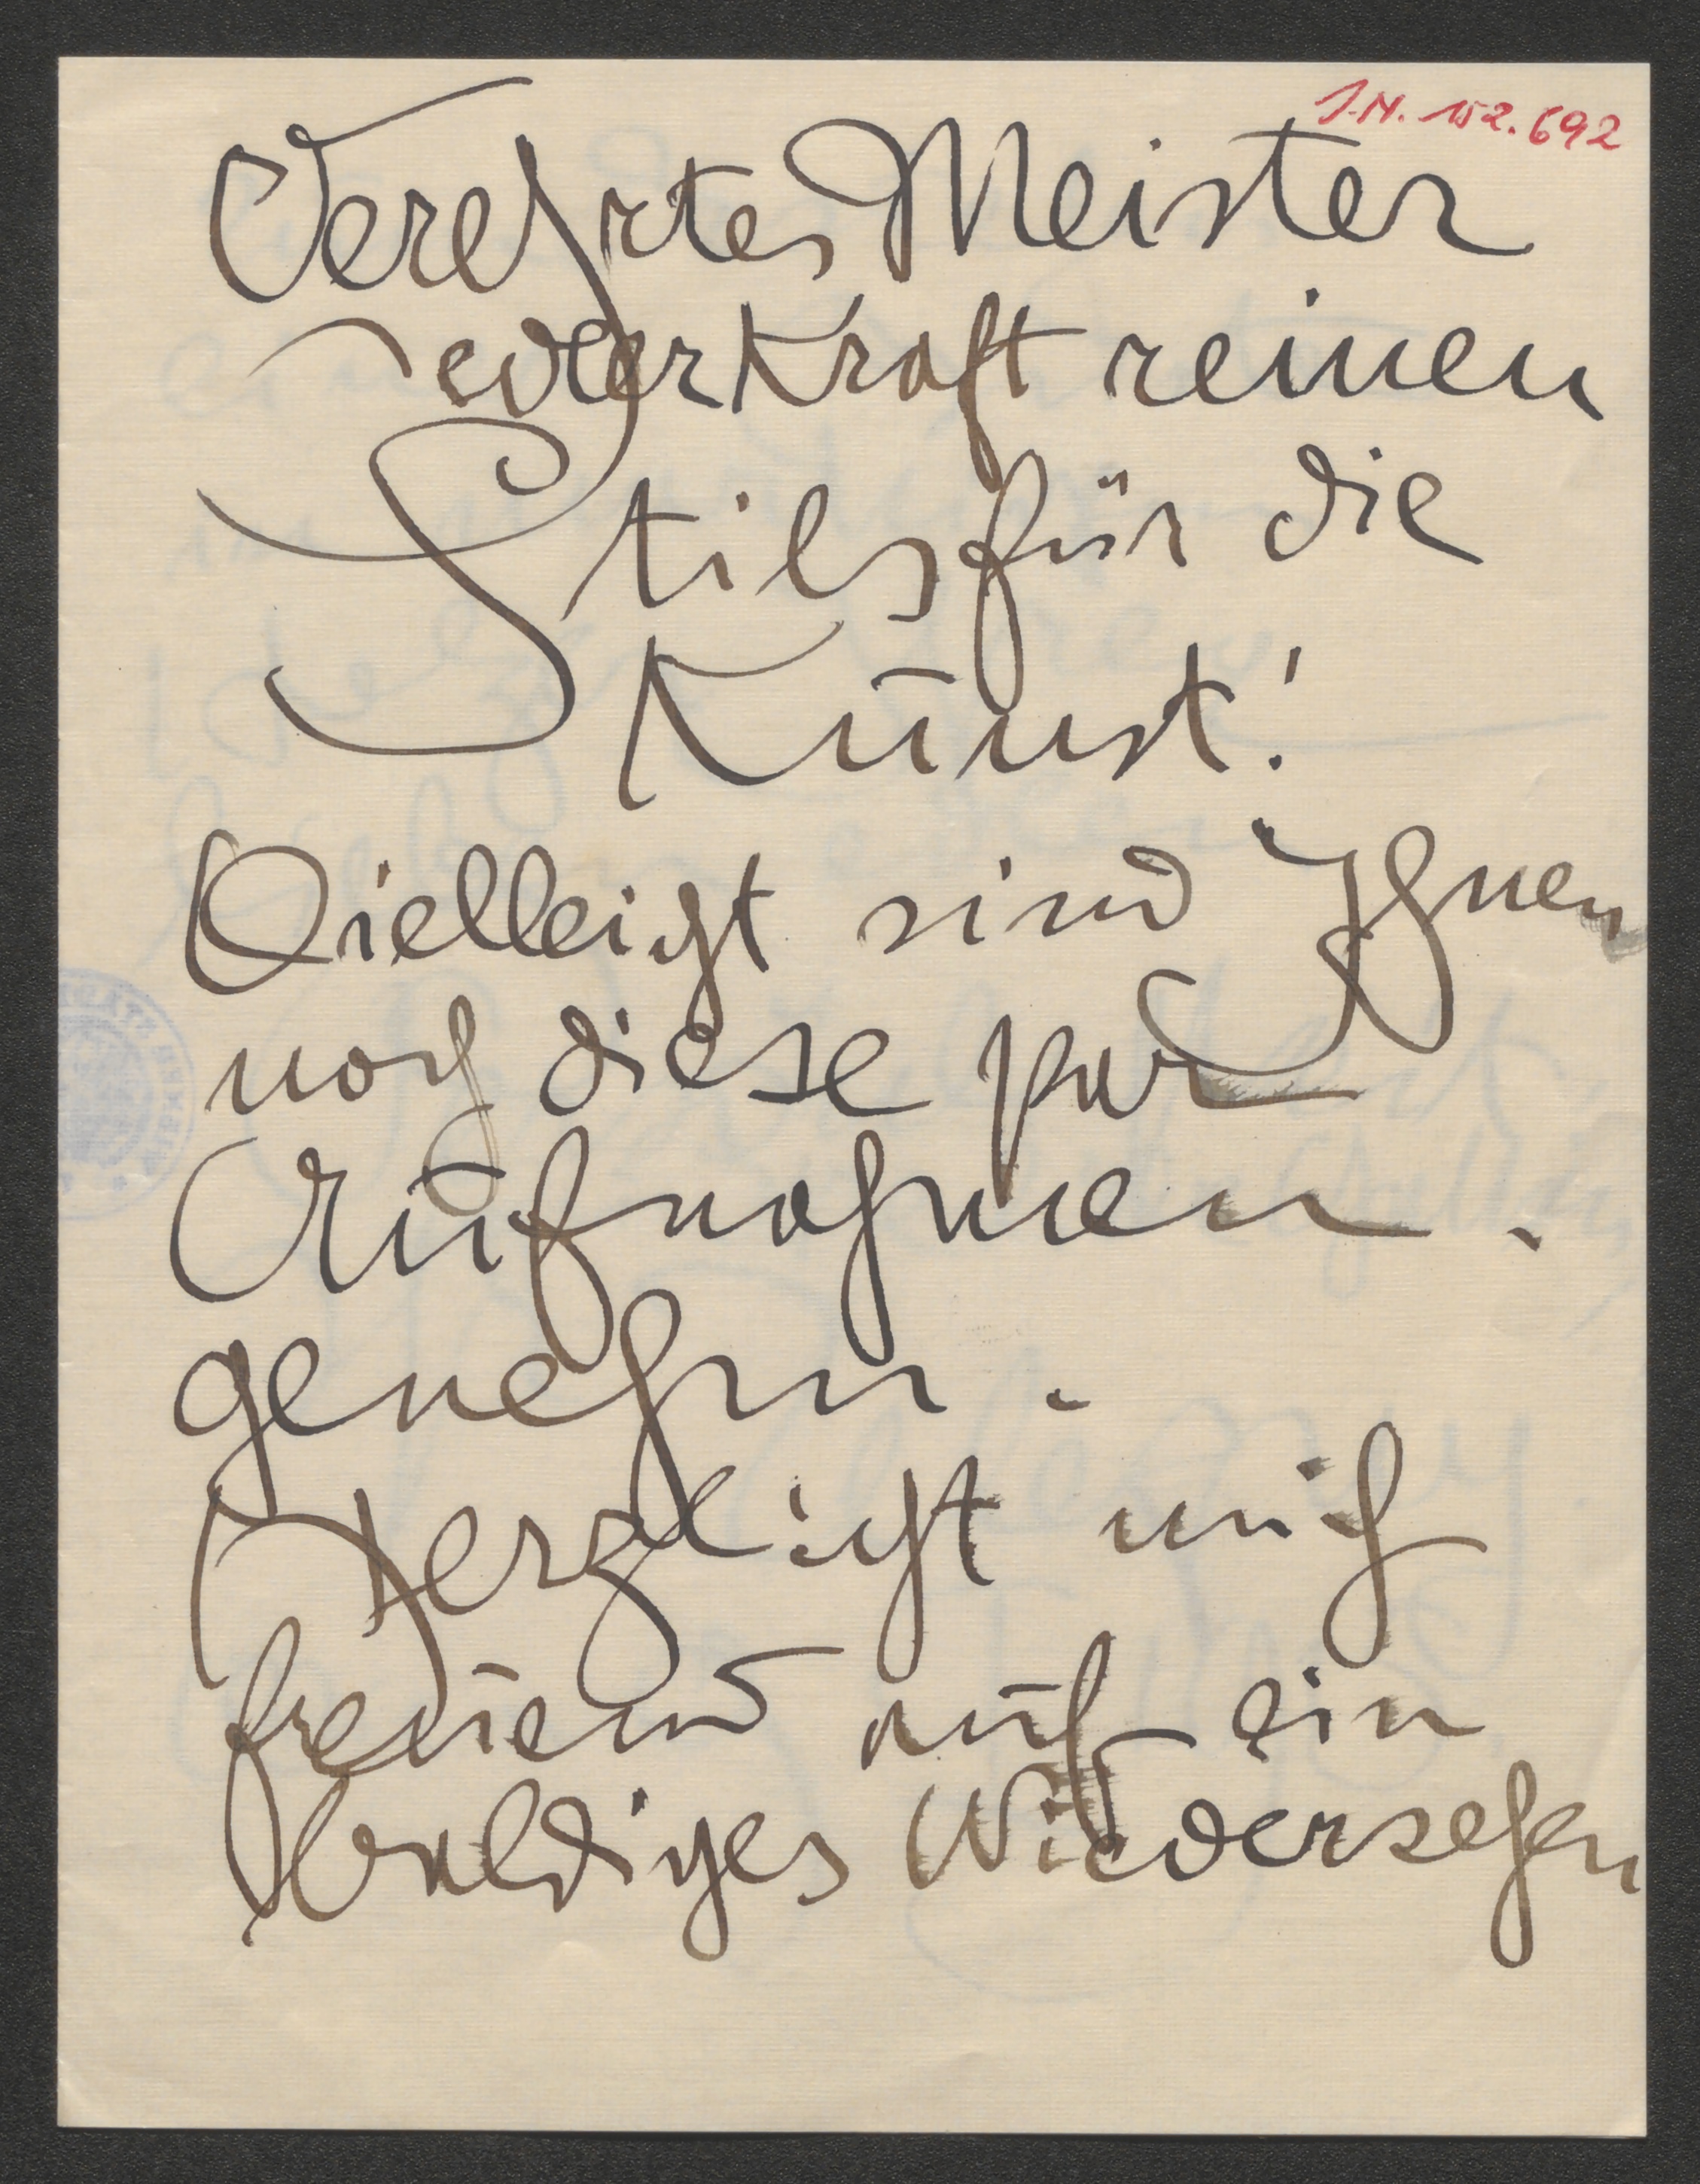 J.N. 152.692
Verehrtes Meister
edler Kraft reinen
Stils für die
Kunst!
Vielleicht sind Ihnen
noch diese par
Aufnahmen.
genehm.
Herzlichst mich
freuend auf ein
baldiges Wiedersehen